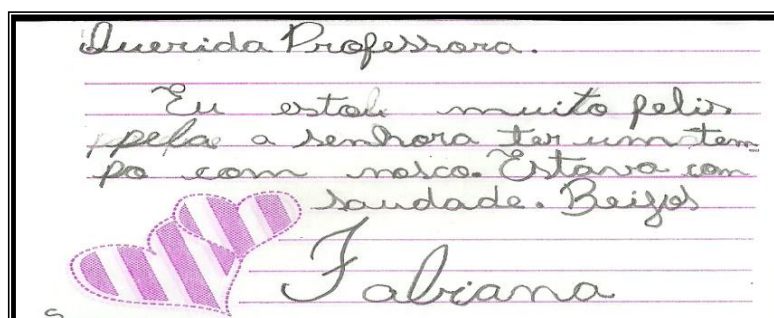 Querida Professora.
Eu estou muito felis
pela a senhora ter um tem
po com nosco. Estava com
saudade. Beijos
Fabiana